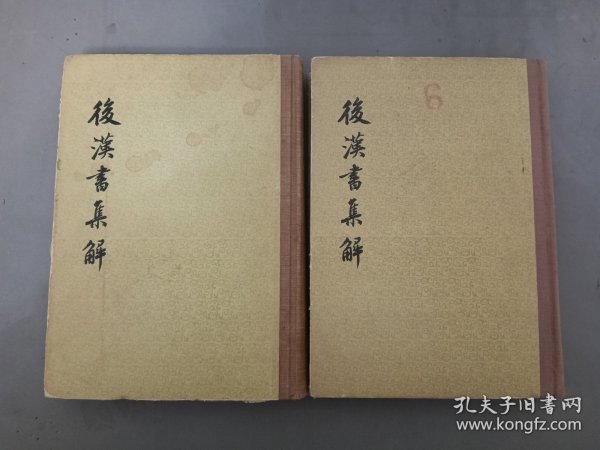 後漢書集解
後漢書集解
6
孔夫子旧書网
www.kongfz.com